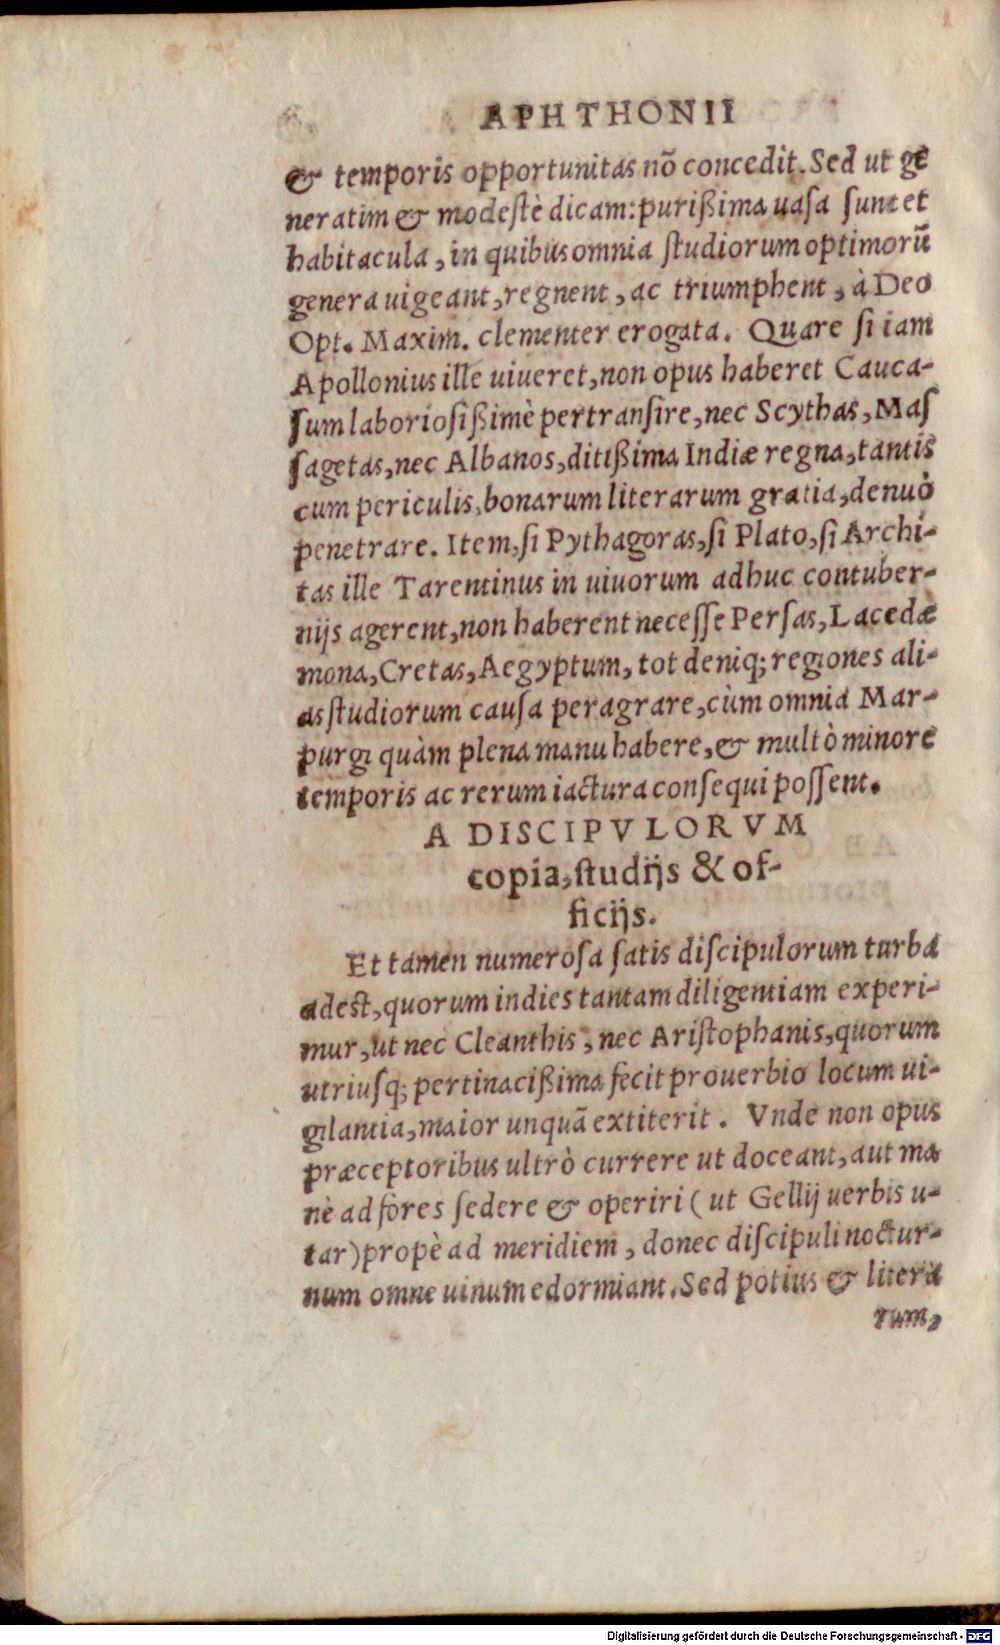 APHTHONII
& temporis opportunitas nõ concedit. Sed ut ge
neratim & modestè dicam: purißima uasa sunt et
habitacula, in quibus omnia studiorum optimorũ
genera uigeant, regnent, ac triumphent, à Deo
Opt. Maxim. clementer erogata. Quare si iam
Apollonius ille uiueret, non opus haberet Cauca-
sum laboriosißimè pertransire, nec Scythas, Mas
sagetas, nec Albanos, ditißima Indiæ regna, tantis
cum periculis, bonarum literarum gratia, denuò
penetrare. Item, si Pythagoras, si Plato, si Archi-
tas ille Tarentinus in uiuorum adhuc contuber-
nijs agerent, non haberent necesse Persas, Lacedæ
mona, Cretas, Aegyptum, tot deniq; regiones ali-
as studiorum causa peragrare, cùm omnia Mar-
purgi quàm plena manu habere, & multò minore
temporis ac rerum iactura consequi possent.
A DISCIPVLORVM
copia, studijs & of-
ficijs.
Et tamen numerosa satis discipulorum turba
adest, quorum indies tantam diligentiam experi-
mur, ut nec Cleanthis, nec Aristophanis, quorum
utriusq; pertinacißima fecit prouerbio locum ui-
gilantia, maior unquã extiterit. Vnde non opus
præceptoribus ultrò currere ut doceant, aut ma
nè ad fores sedere & operiri (ut Gellij uerbis u-
tar) propè ad meridiem, donec discipuli noctur-
num omne uinum edormiant. Sed potius & litera
rum,
Digitalisierung gefördert durch die Deutsche Forschungsgemeinschaft - DFG